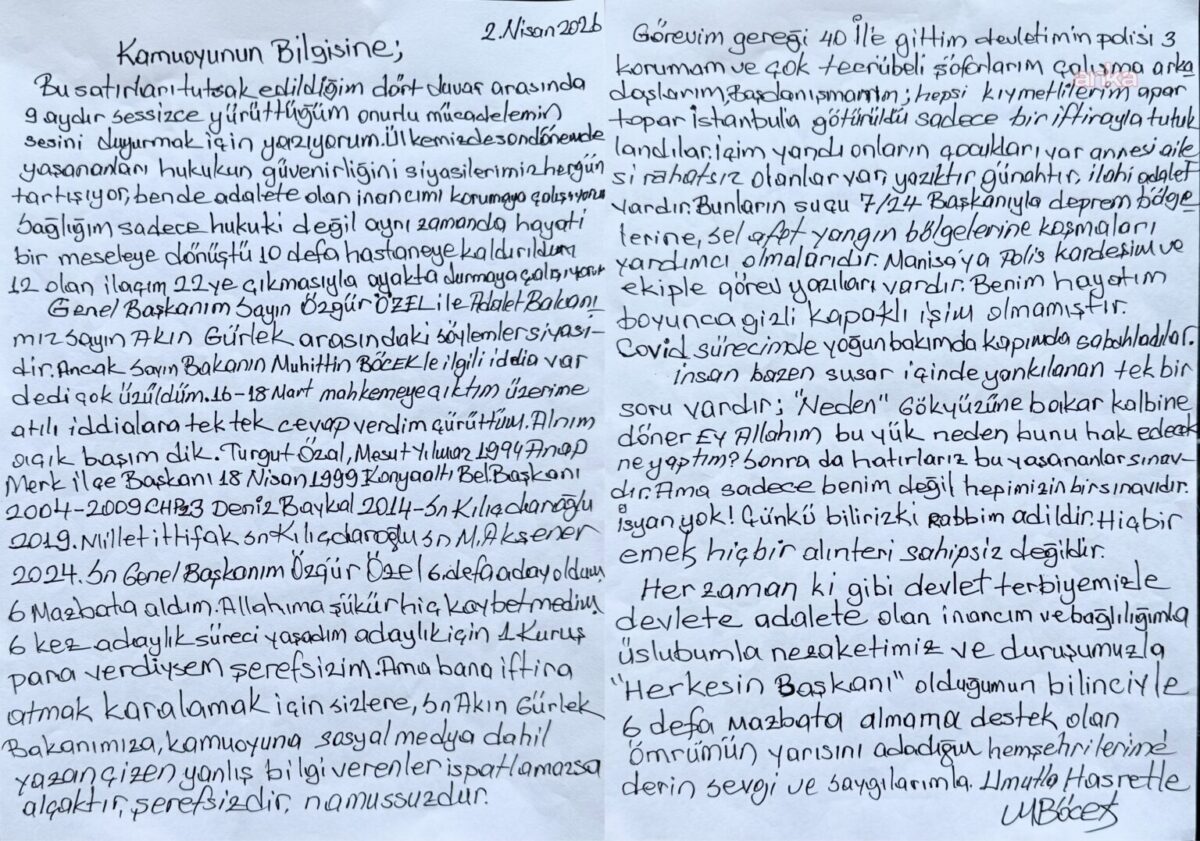 2.Nisan 2026
Kamuoyunun Bilgisine;
Bu satırları tutsak edildiğim dört duvar arasında
9 aydır sessizce yürüttüğüm onurlu mücadelemin
sesini duyurmak için yazıyorum. Ülkemizde son dönemde
yaşananları hukukun güvenirliğini siyasilerimiz hergün
tartışıyor, bende adalete olan inancımı korumaya çalışıyorum
Sağlığım sadece hukuki değil aynı zamanda hayati
bir meseleye dönüştü 10 defa hastaneye kaldırıldım
12 olan ilaçım 22 ye çıkmasıyla ayakta durmaya çalışıyorum
Genel Başkanım Sayın Özgür ÖZEL ile Adalet Bakanı
mız Sayın Akın Gürlek arasındaki söylemler siyasi-
dir. Ancak Sayın Bakanın Muhittin BÖCEKle ilgili iddia var
dedi çok üzüldüm. 16-18 Mart mahkemeye çıktım üzerine
atılı iddialara tek tek cevap verdim çürüttüm. Alnım
açık başım dik. Turgut Özal, Mesut Yılmaz 1994 Anap
Merk ilçe Başkanı 18 Nisan 1999 Konyaaltı Bel. Başkanı
2004-2009 CHP Deniz Baykal 2014-Sn Kılıçdaroğlu
2019. Millet ittifak Sn Kılıçdaroğlu Sn M. Akşener
2024. Sn Genel Başkanım Özgür Özel 6. defa aday oldum,
6 Mazbata aldım. Allahıma şükür hiç kaybetmedim,
6 kez adaylık süreci yaşadım adaylık için 1 Kuruş
para verdiysem şerefsizim. Ama bana iftira
atmak karalamak için sizlere, Sn Akın Gürlek
Bakanımıza, kamuoyuna sosyal medya dahil
yazan çizen yanlış bilgi verenler ispatlamazsa
alçaktır, şerefsizdir, namussuzdur.
Görevim gereği 40 İl'e gittim devletimin polisi 3
korumam ve çok tecrübeli şöforlarım çalışma arka
anka
daşlarım, Başdanışmanım; hepsi kıymetlilerim apar
topar istanbula götürüldü sadece bir iftirayla tutuk
landılar. içim yandı onların çocukları var annesi aile
si rahatsız olanlar var, yazıktır günahtır, ilahi adalet
vardır. Bunların suçu 7/24 Başkanıyla deprem bölge
lerine, sel afet yangın bölgelerine koşmaları
yardımcı olmalarıdır. Manisa'ya Polis kardeşim ve
ekiple görev yazıları vardır. Benim hayatım
boyunca gizli kapaklı işim olmamıştır.
Covid sürecimde yoğun bakımda kapımda sabahladılar.
insan bazen susar içinde yankılanan tek bir
soru vardır; "Neden" Gökyüzüne bakar kalbine
döner Ey Allahım bu yük neden bunu hak edecek
ne yaptım? Sonra da hatırlarız bu yaşananlar sınav-
dır. Ama sadece benim değil hepimizin bir sınavıdır.
isyan yok! Çünkü biliriz ki Rabbim adildir. Hiçbir
emek hiçbir alınteri sahipsiz değildir.
Her zaman ki gibi devlet terbiyemizle
devlete adalete olan inancım ve bağlılığımla
üslubumla nezaketimiz ve duruşumuzla
"Herkesin Başkanı" olduğumun bilinciyle
6 defa Mazbata almama destek olan
ömrümün yarısını adadığım hemşehrilerime
derin sevgi ve saygılarımla. Umutla Hasretle
MBöcek